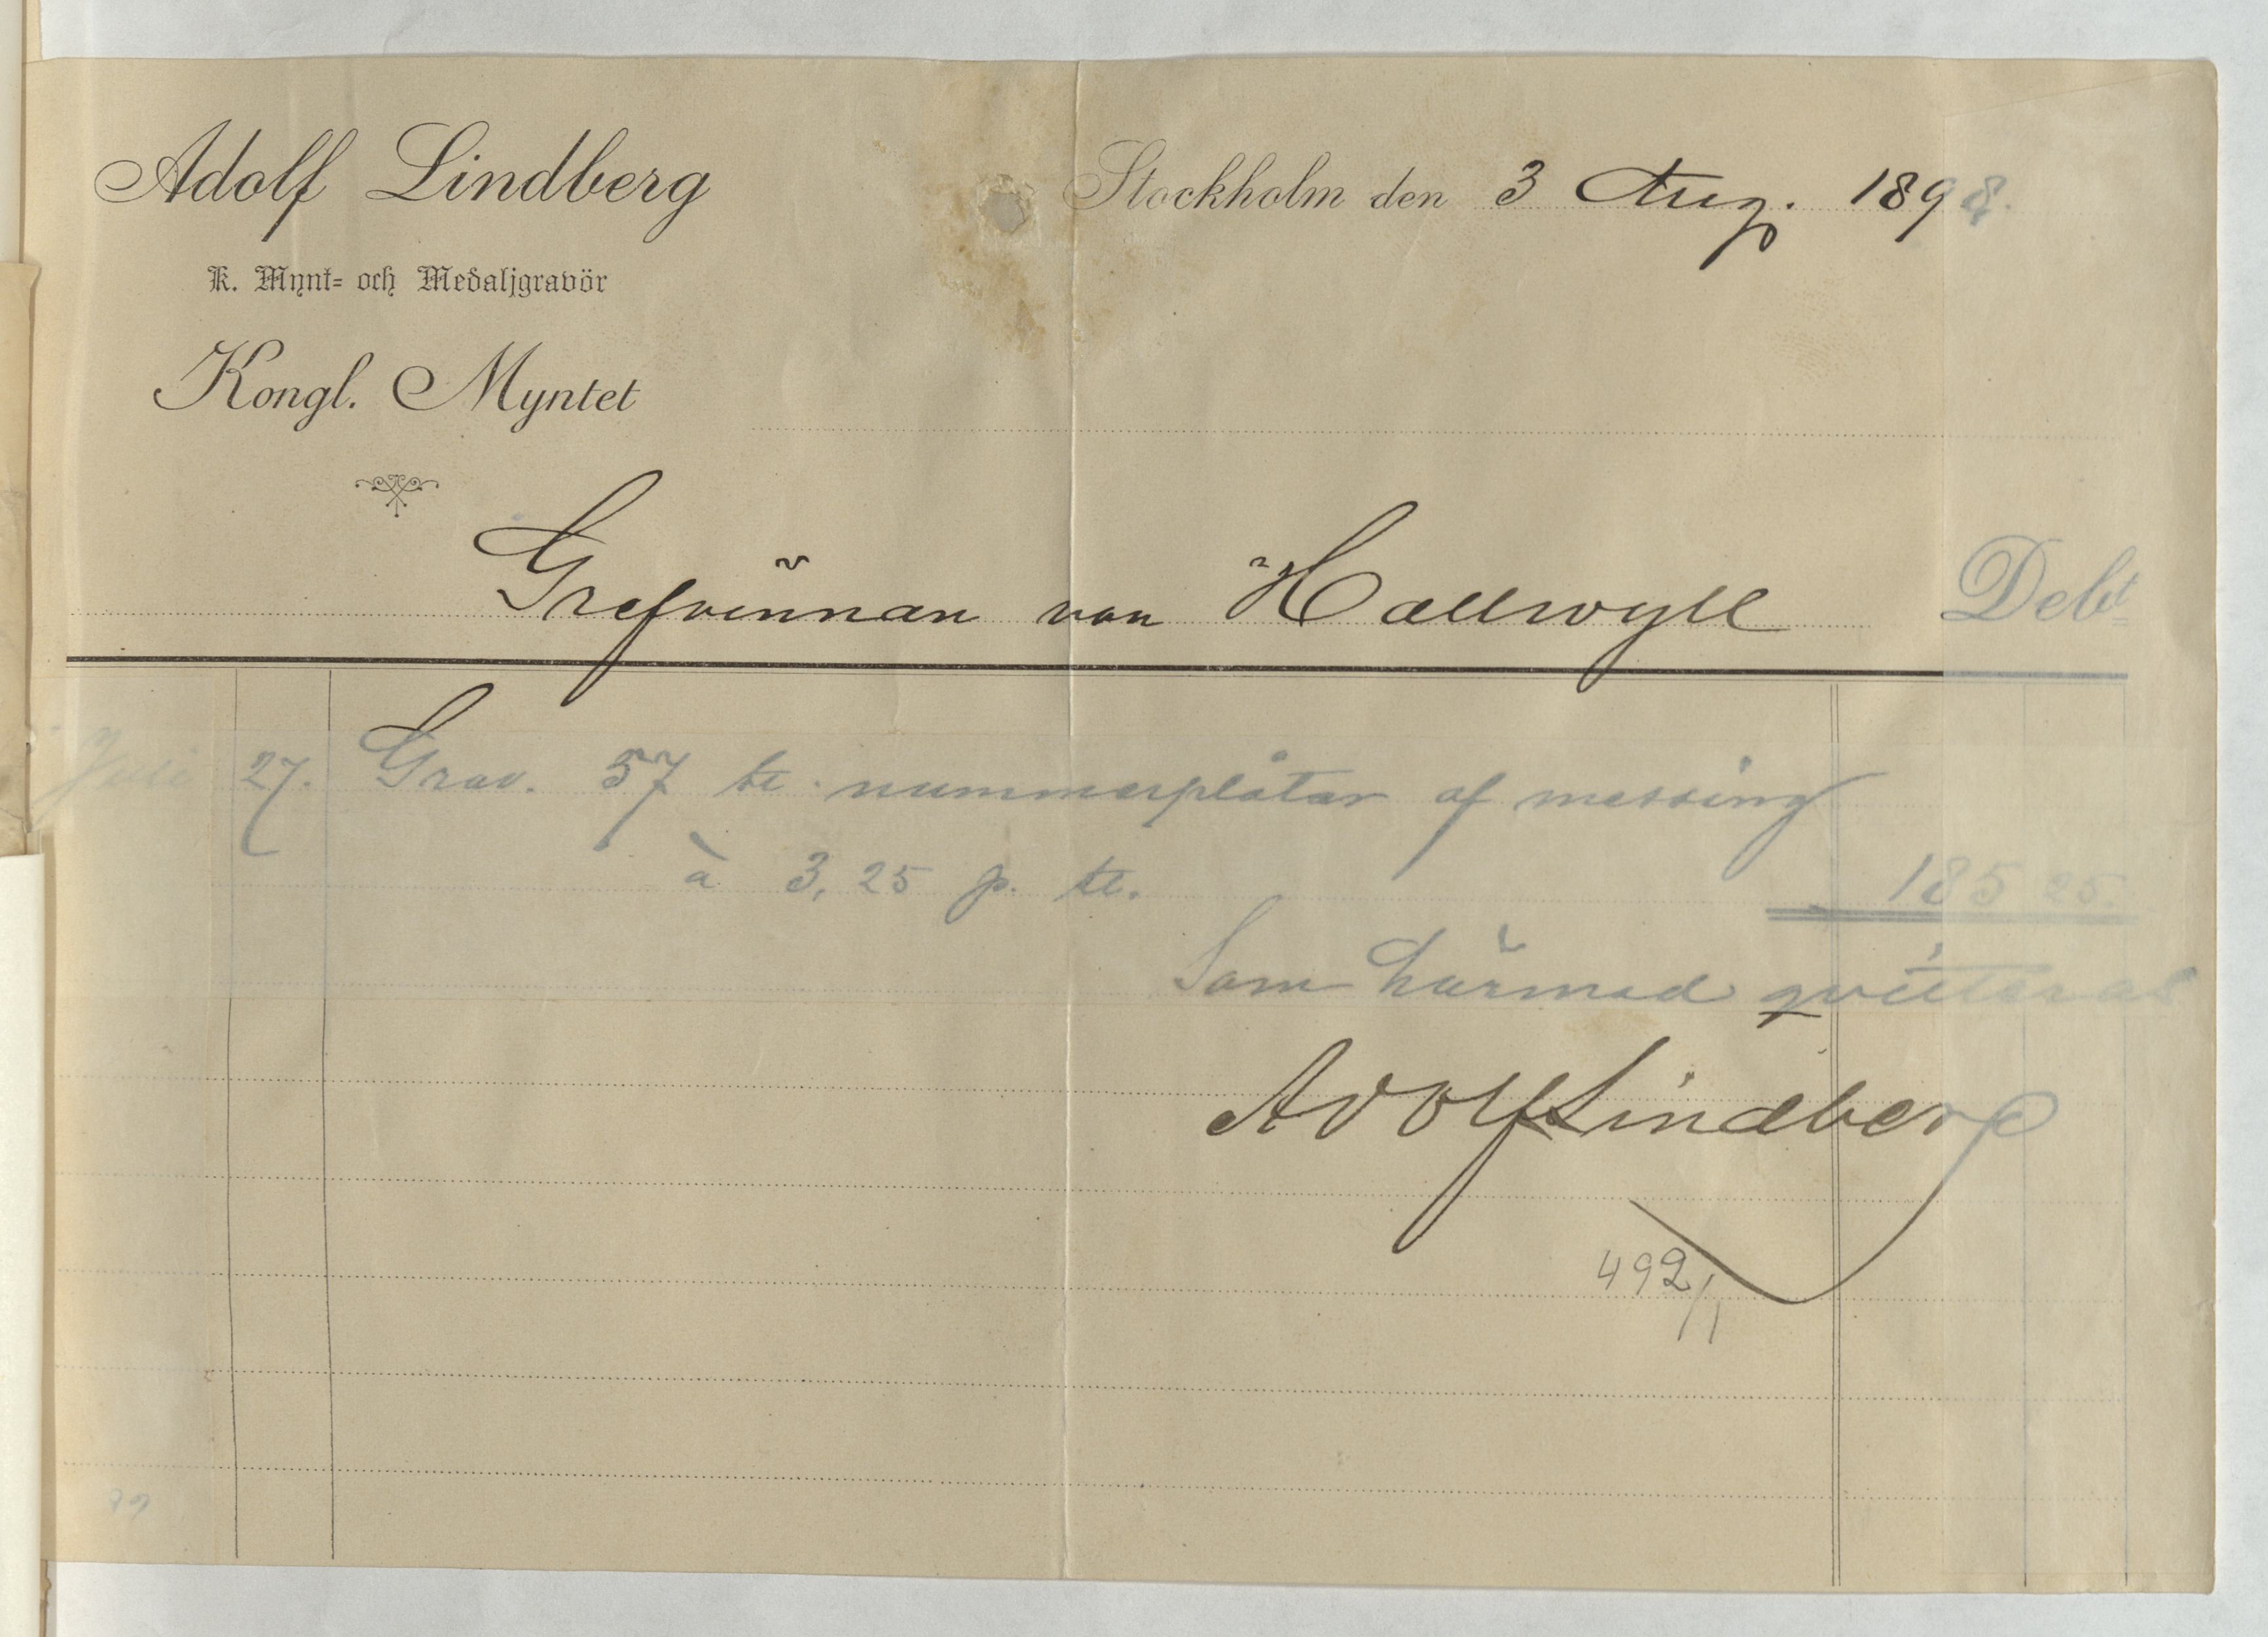 Adolf Lindberg
Stockholm den 3 Aug. 1898.
K. Mynt= och Medaljgravör
Kongl. Myntet
Grefvinnan von Hallwyll Debt
Juli 27. Grav. 57 st. nummerplåtar af messing
à 3,25 p. st. 185 25.
Som härmed qvitteras
Adolf Lindberg
492/1